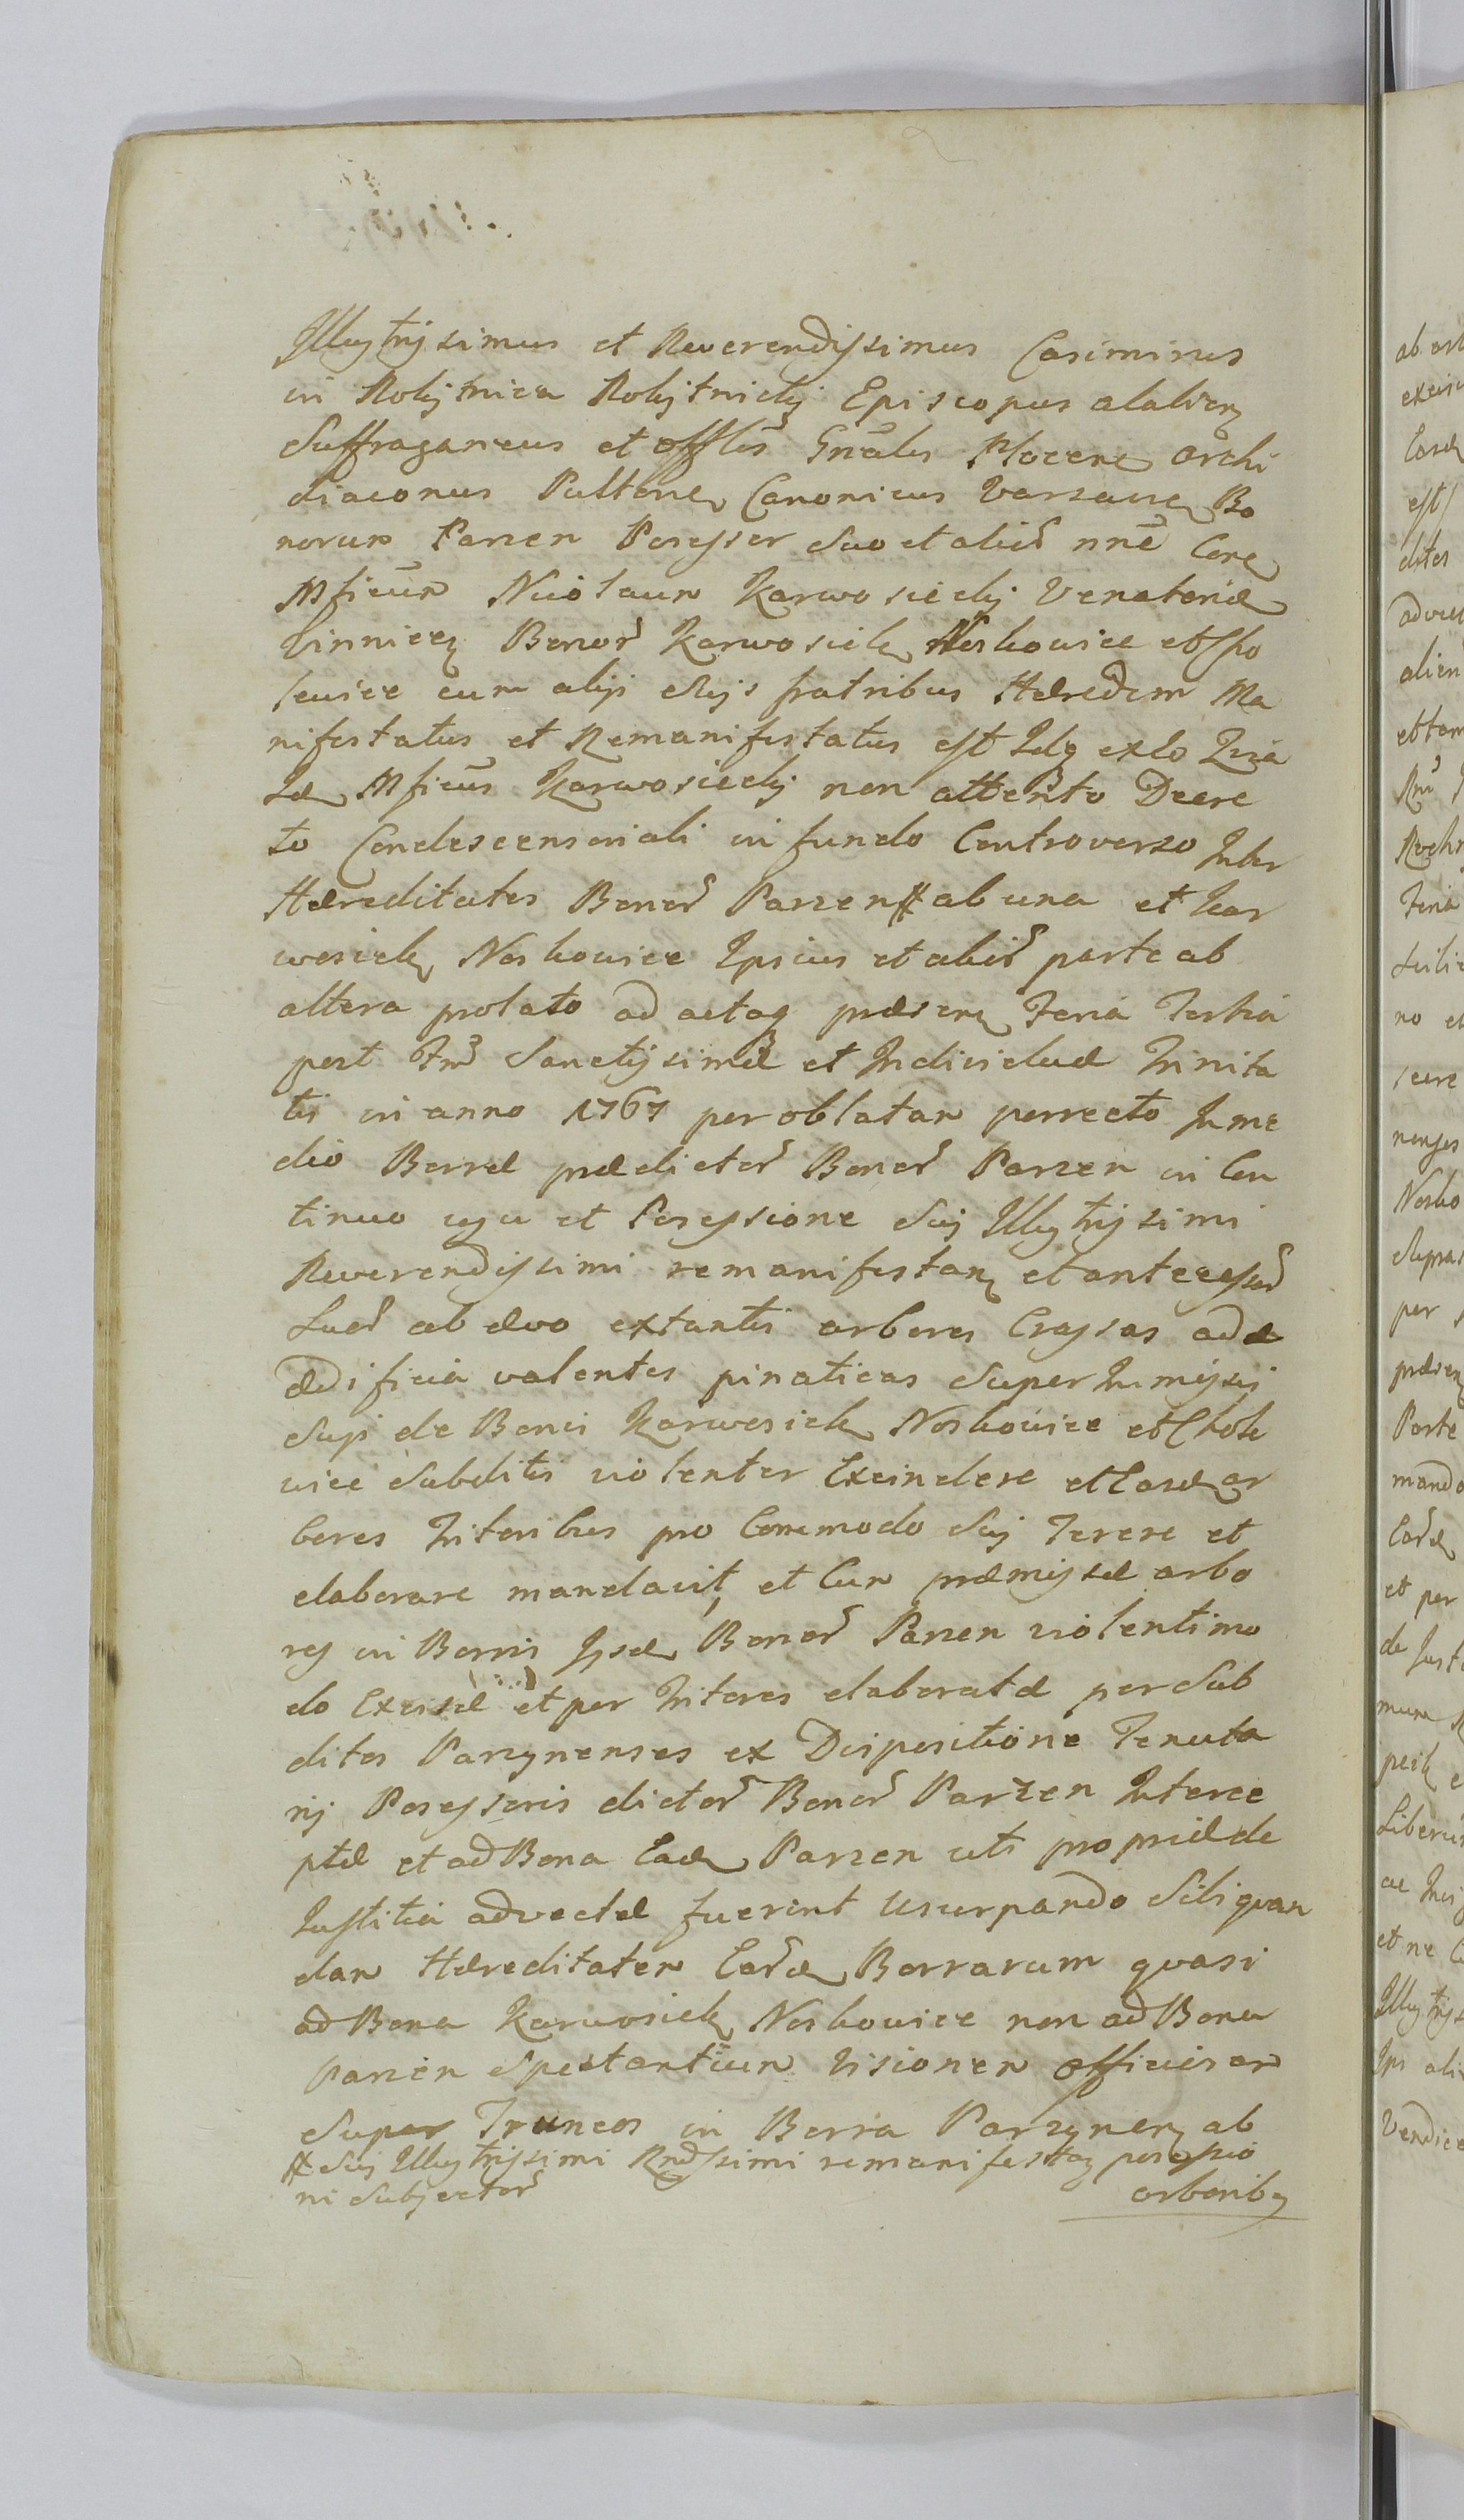 Illustrissimus et Reverendissimus Casimirus
in Rokitnica Rokitnicki Episcopus alalien
Suffraganeus et offlis Gnalis Plocen Archi
diaconus Pultoven Canonicus Varsavien Bo
norum Parzen Possessor Suo et alior nne Cora
Mficum Nicolaum Karwosiecki Venatorid
Vinnicen Bonor Karwosieki Noskowice et Cho
lewice cum alijs Suis fratribus Hæredem Ma
nifestatus et Remanifestatus est Idq ex eo Quia
Idem Mficus Karwosiecki non attento Decre
to Condescensoriali in fundo Controverso Inter
Hæreditates Bonor Parzen # ab una et Kar
wosieki Noskowice Ipsius et alior parte ab
altera prolato ad actaq præsen Feria Tertia
post Fm Sanctissimæ et Individuæ Trinita
tis in anno 1767 per oblatam porrecto In me
dio Borræ prædictor Bonor Parzen in Con
tinuo usu et Possessione Sui Illustrissimi
Reverendissimi remanifestan et antecessor
Suor ab ævo extantis arbores Crassas ad æ
ædificia valentes pinaticas Super Inmissis
Suis de Bonis Karwosieki Noskowice et Chole
wice Subditis violenter Excindere et Easdem ar
bores Tritoribus pro Commodo Sui Terere et
elaborare mandavit, et Cum præmissæ arbo
res in Borris Ipsæ Bonor Parzen violentimo
do Excisæ et per Tritores elaboratæ per Sub
ditos Parzynenses ex Dispositione Tenuta
rij Possessoris dictor Bonor Parzen Interce
ptæ et ad Bona Eadem Parzen uti propriæ de
Iustitia advectæ fuerint Usurpando Sibi quan
dam Hæreditatem Eard Borrarum quasi
ad Bona Karwosieki Noskowice non ad Bona
Parzen Spectantium Visionem officiosam
Super Truncos in Borra Parzynen ab
# Sui Illustrissimi Rndssimi remanifestan possessio
ni Subjector
arborib9